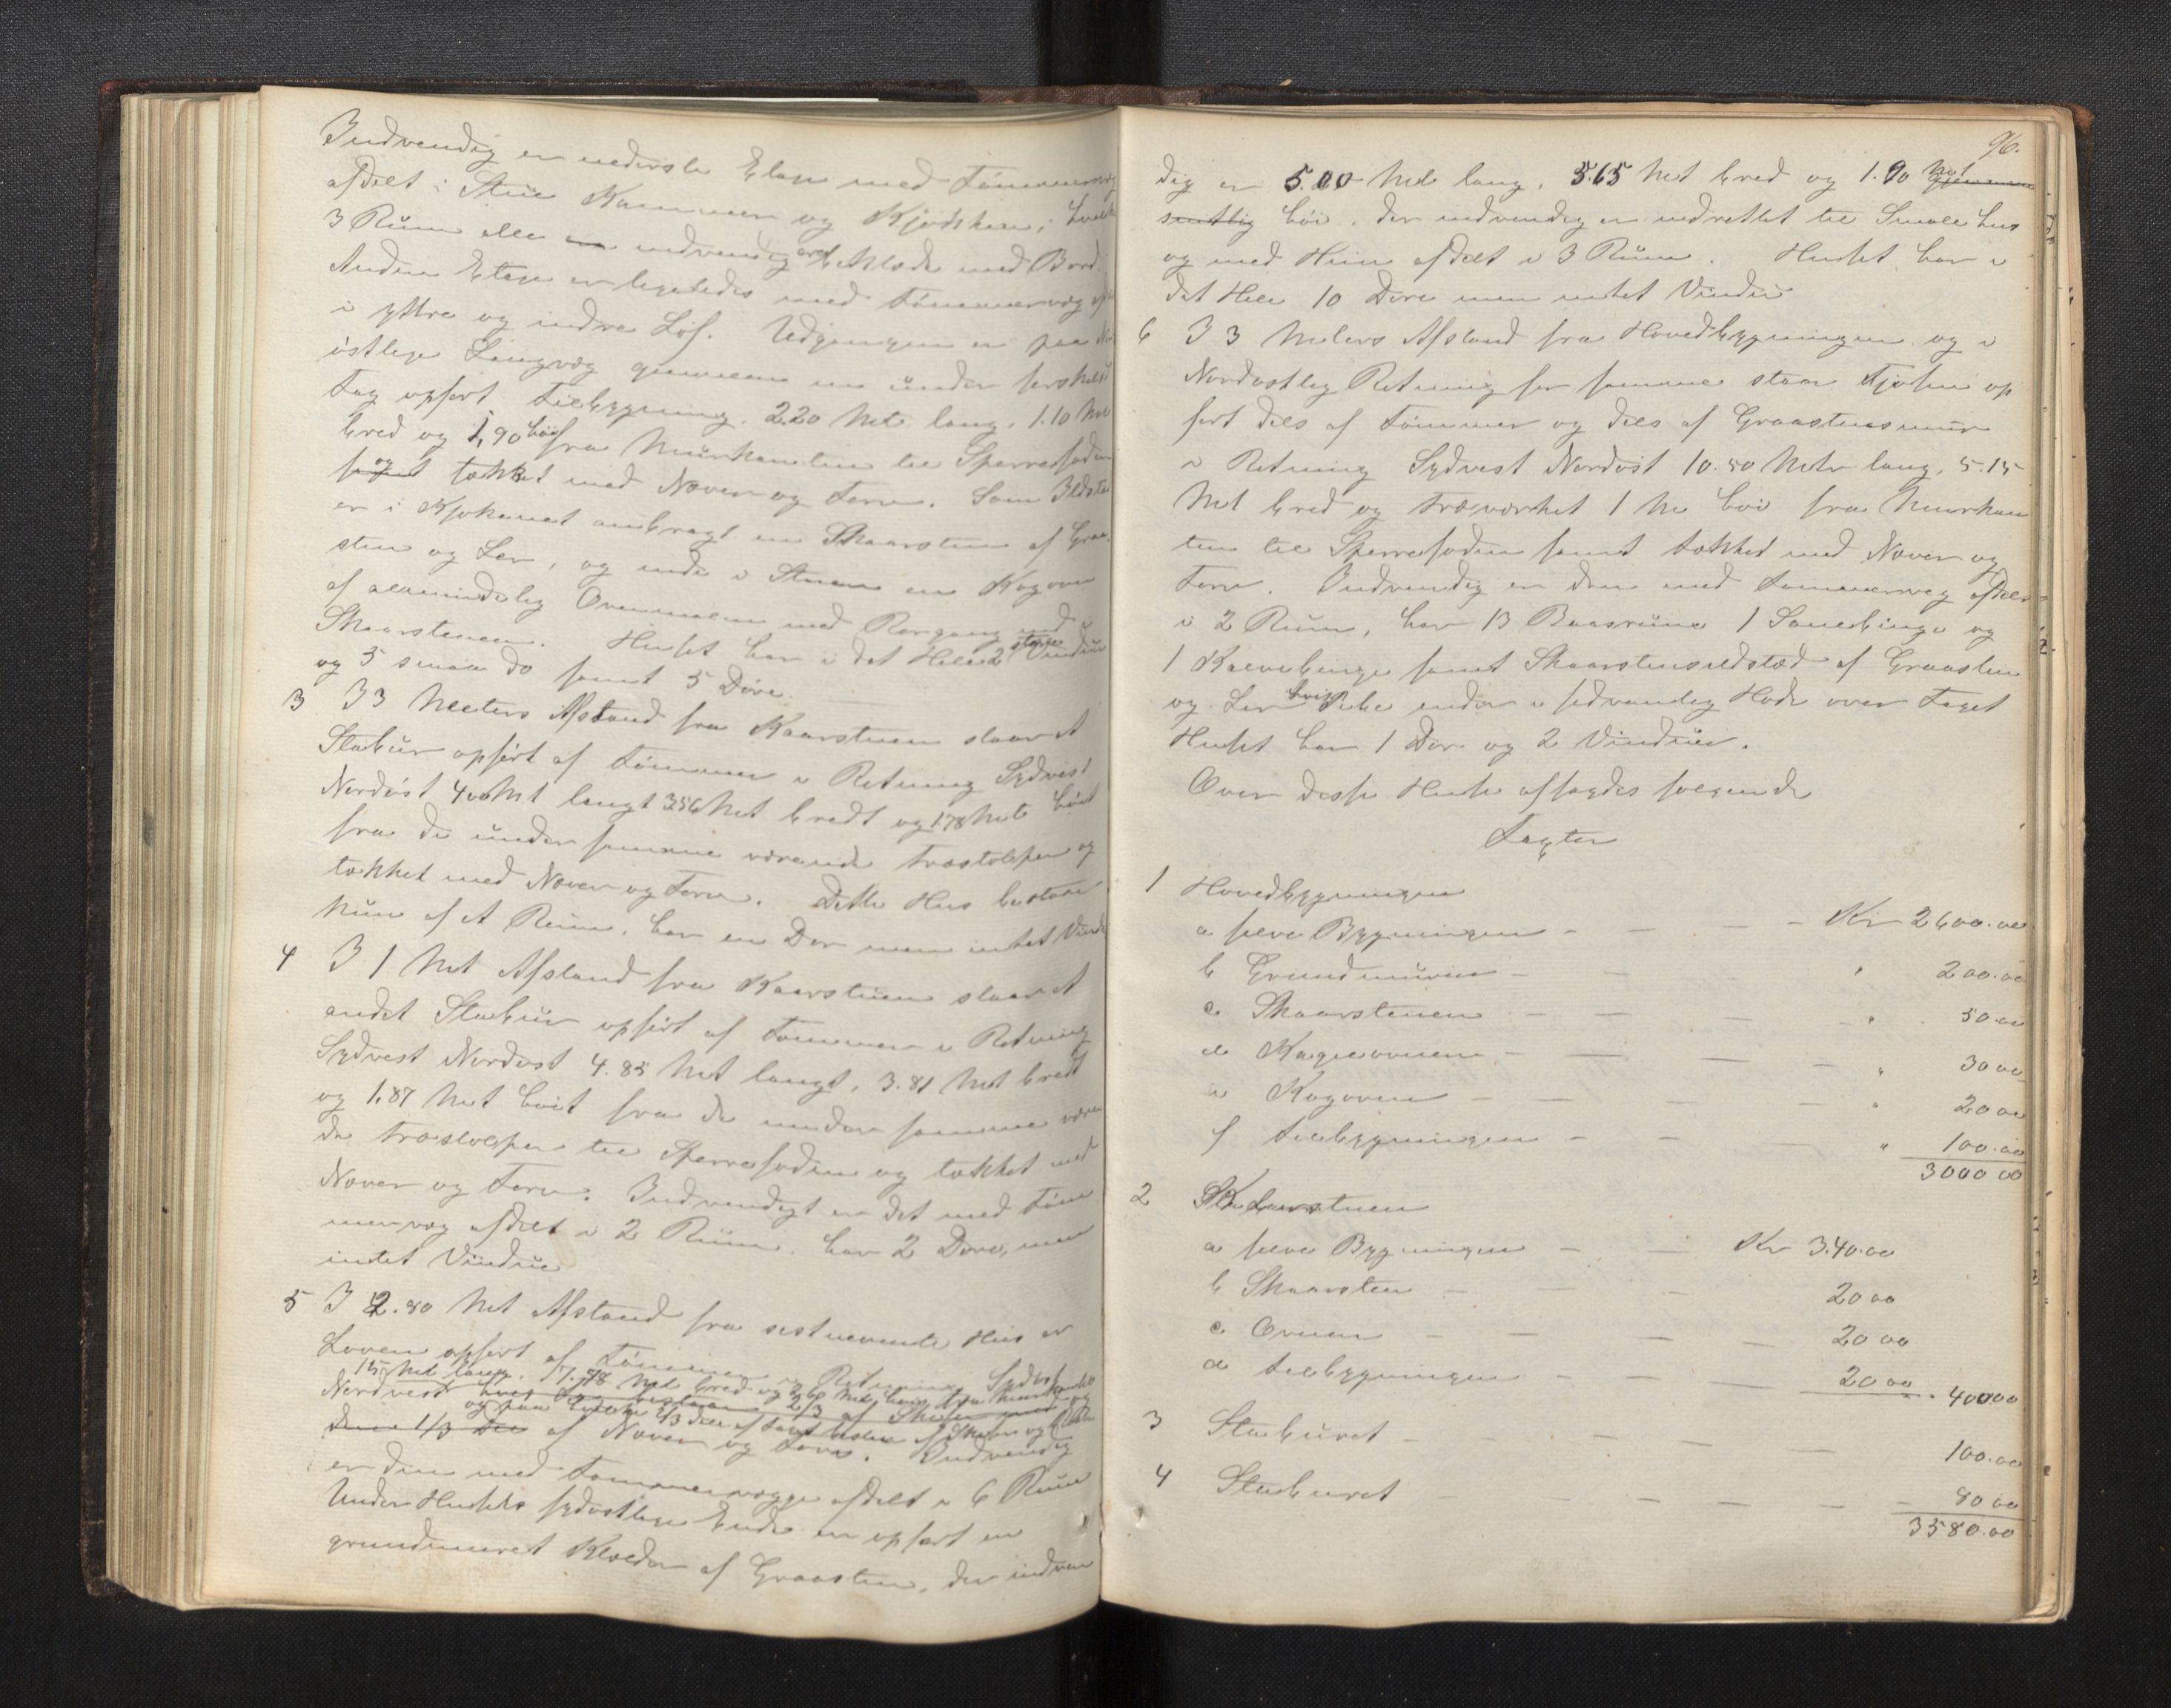 Indvendig er nederste Etage med Tømmervæg
afdelt i Stue Kammer og Kjøkken, i hvilke
3 Rum alle er indvendig er beklædt med Bord.
Anden Etage er ligeledes med Tømmervæg af
i yttre og indre Loft. Udgangen er paa
østlige Langvæg gjennem en under forskudt
Tag opført Tilbygning. 2.20 Met. lang, 1.10 Met
bred og 1,90 høi fra Murkanten til Sperrefoden
samt og tækket med Næver og Torv. Som Ildsted
er i Kjøkkenet anbragt en Skaarsten af Graa-
sten og Ler, og inde i Stuen en Kogovn
af almindelig Ovnmalm med Rørgang ind
Skaarstenen. Huset har i det Hele 2 store Vinduer
og 5 smaa do samt 5 Døre.
3 I 3 Meters Afstand fra Kaarstuen staar et
Stabur opført af Tømmer i Retning Sydvest
Nordøst 400 Met langt 3.56 Met bredt og 1.78 Met høit
fra de under samme værende Træstolper og
tækket med Næver og Torv. Dette Hus bestaar
kun af et Rum, har en Dør men intet Vindu
4 I 1 Met Afstand fra Kaarstuen staar et
andet Stabur opført af Tømmer i Retning
Sydvest Nordøst 4.85 Met langt, 3.81 Met bredt
og 1.87 Met høit fra de under samme væren
de Træstolper til Sperrefoden og tækket med
Næver og Torv. Indvendigt er det med Tøm
mervæg afdelt i 2 Rum. har 2 Døre, men
intet Vindue
5 I 2.80 Met Afstand fra sistnævnte Hus er
Loven opført af Tømmer i Retning Sydøst
15 Met lang. 7.78 Met bred og 2.60 Met høi fra Murkanten
Nordvest hvis Tag bestaar 2/3 af Skifer med
og paa hvilke 2/3 Dele af Taget bestaar af Skifer og
dens 1/3 Del af Næver og Torv. Indvendig
er den med Tømmervægge afdelt i 6 Rum
Under Husets sydøstlige Ende er opført en
grundmuret Kjælder af Graasten, der indven
96.
dig er 5.00 Met lang, 3.65 Met bred og 1.90 Met gjennem
snitlig høi. der indvendig er indrettet til Smale hus
og med Hun afdelt i 3 Rum. Huset har i
det Hele 10 Døre men intet Vindue
6 I 3 Meters Afstand fra Hovedbygningen og i
Nordøstlig Retning for samme staar Fjøsen op
ført dels af Tømmer og dels af Graastensmur
i Retning Sydvest Nordøst 10.50 Metr lang, 5.15
Met bred og Træværket 1 Me høi fra Murkan
ten til Sperrefoden samt tækket med Næver og
Torv. Indvendig er den med Tømmervæg afdelt
i 2 Rum, har 13 Baasrum 1 Sauebinge og
1 Kalvebinge samt Skaarstensildsted af Graasten
og Ler hvis Pibe ender i sedvanlig Høide over Taget
Huset har 1 Dør og 2 Vinduer.
Over disse Huse afsagdes følgende
Taxter
1 Hovedbygningen
a selve Bygningen - - - - Kr 2600.00
b Grundmuren - - " 200.00
c Skaarstenen - - - - " 50.00
d Kagleovnen - - - - " 30 00
e Kogovnen - - - - " 20 00
f Tilbygningen - - " 100.00
3000 00
2 Kaarstuen
a selve Bygningen - - Kr 340.00
b Skaarsten - - - 20 00
c Ovnen - - - - 20 00
d Tilbygningen - - - 20 00 . 400 00
3 Staburet - - - - - 100.00
4 Staburet - - - - - - 80 00
3580.00